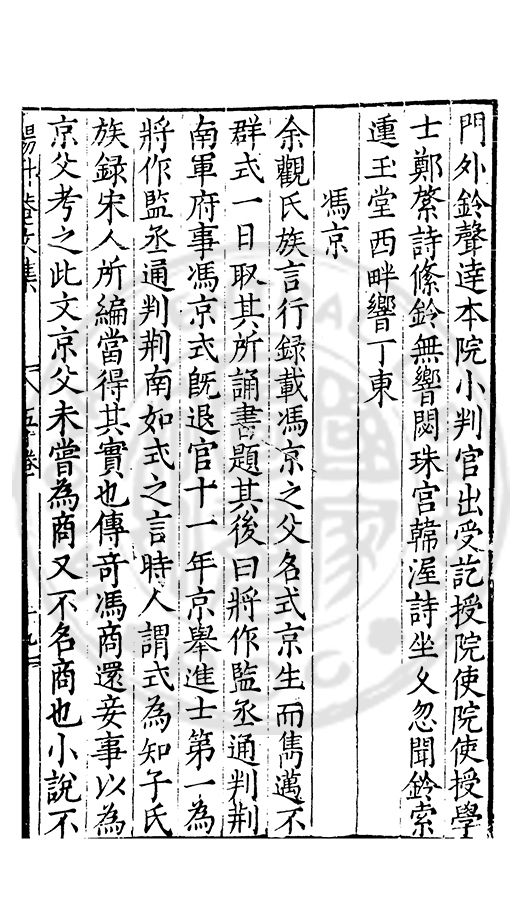 門外鈴聲逹本院小判官出受訖授院使院使授學
士鄭綮詩絛鈴無響閟珠宫韓渥詩坐久忽聞鈴索
動玉堂西畔響丁東
馮京
余觀氏族言行録載馮京之父名式京生而雋邁不
群式一日取其所誦書題其後曰將作監丞通判荆
南軍府事馮京式旣退官十一年京舉進士第一為
將作監丞通判荆南如式之言時人謂式為知子氏
族録宋人所編當得其實也傳奇馮商還妾事以為
京父考之此文京父未嘗為商又不名商也小說不